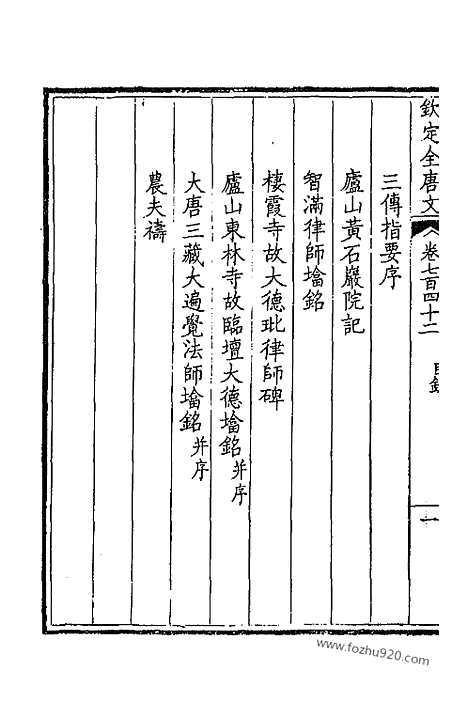 欽定全唐文 卷七百四十二 目錄 一
三傳指要序
廬山黃石巖院記
智滿律師塔銘
棲霞寺故大德玭律師碑
廬山東林寺故臨壇大德塔銘 并序
大唐三藏大遍覺法師塔銘 并序
農夫禱
www.fozhu920.com